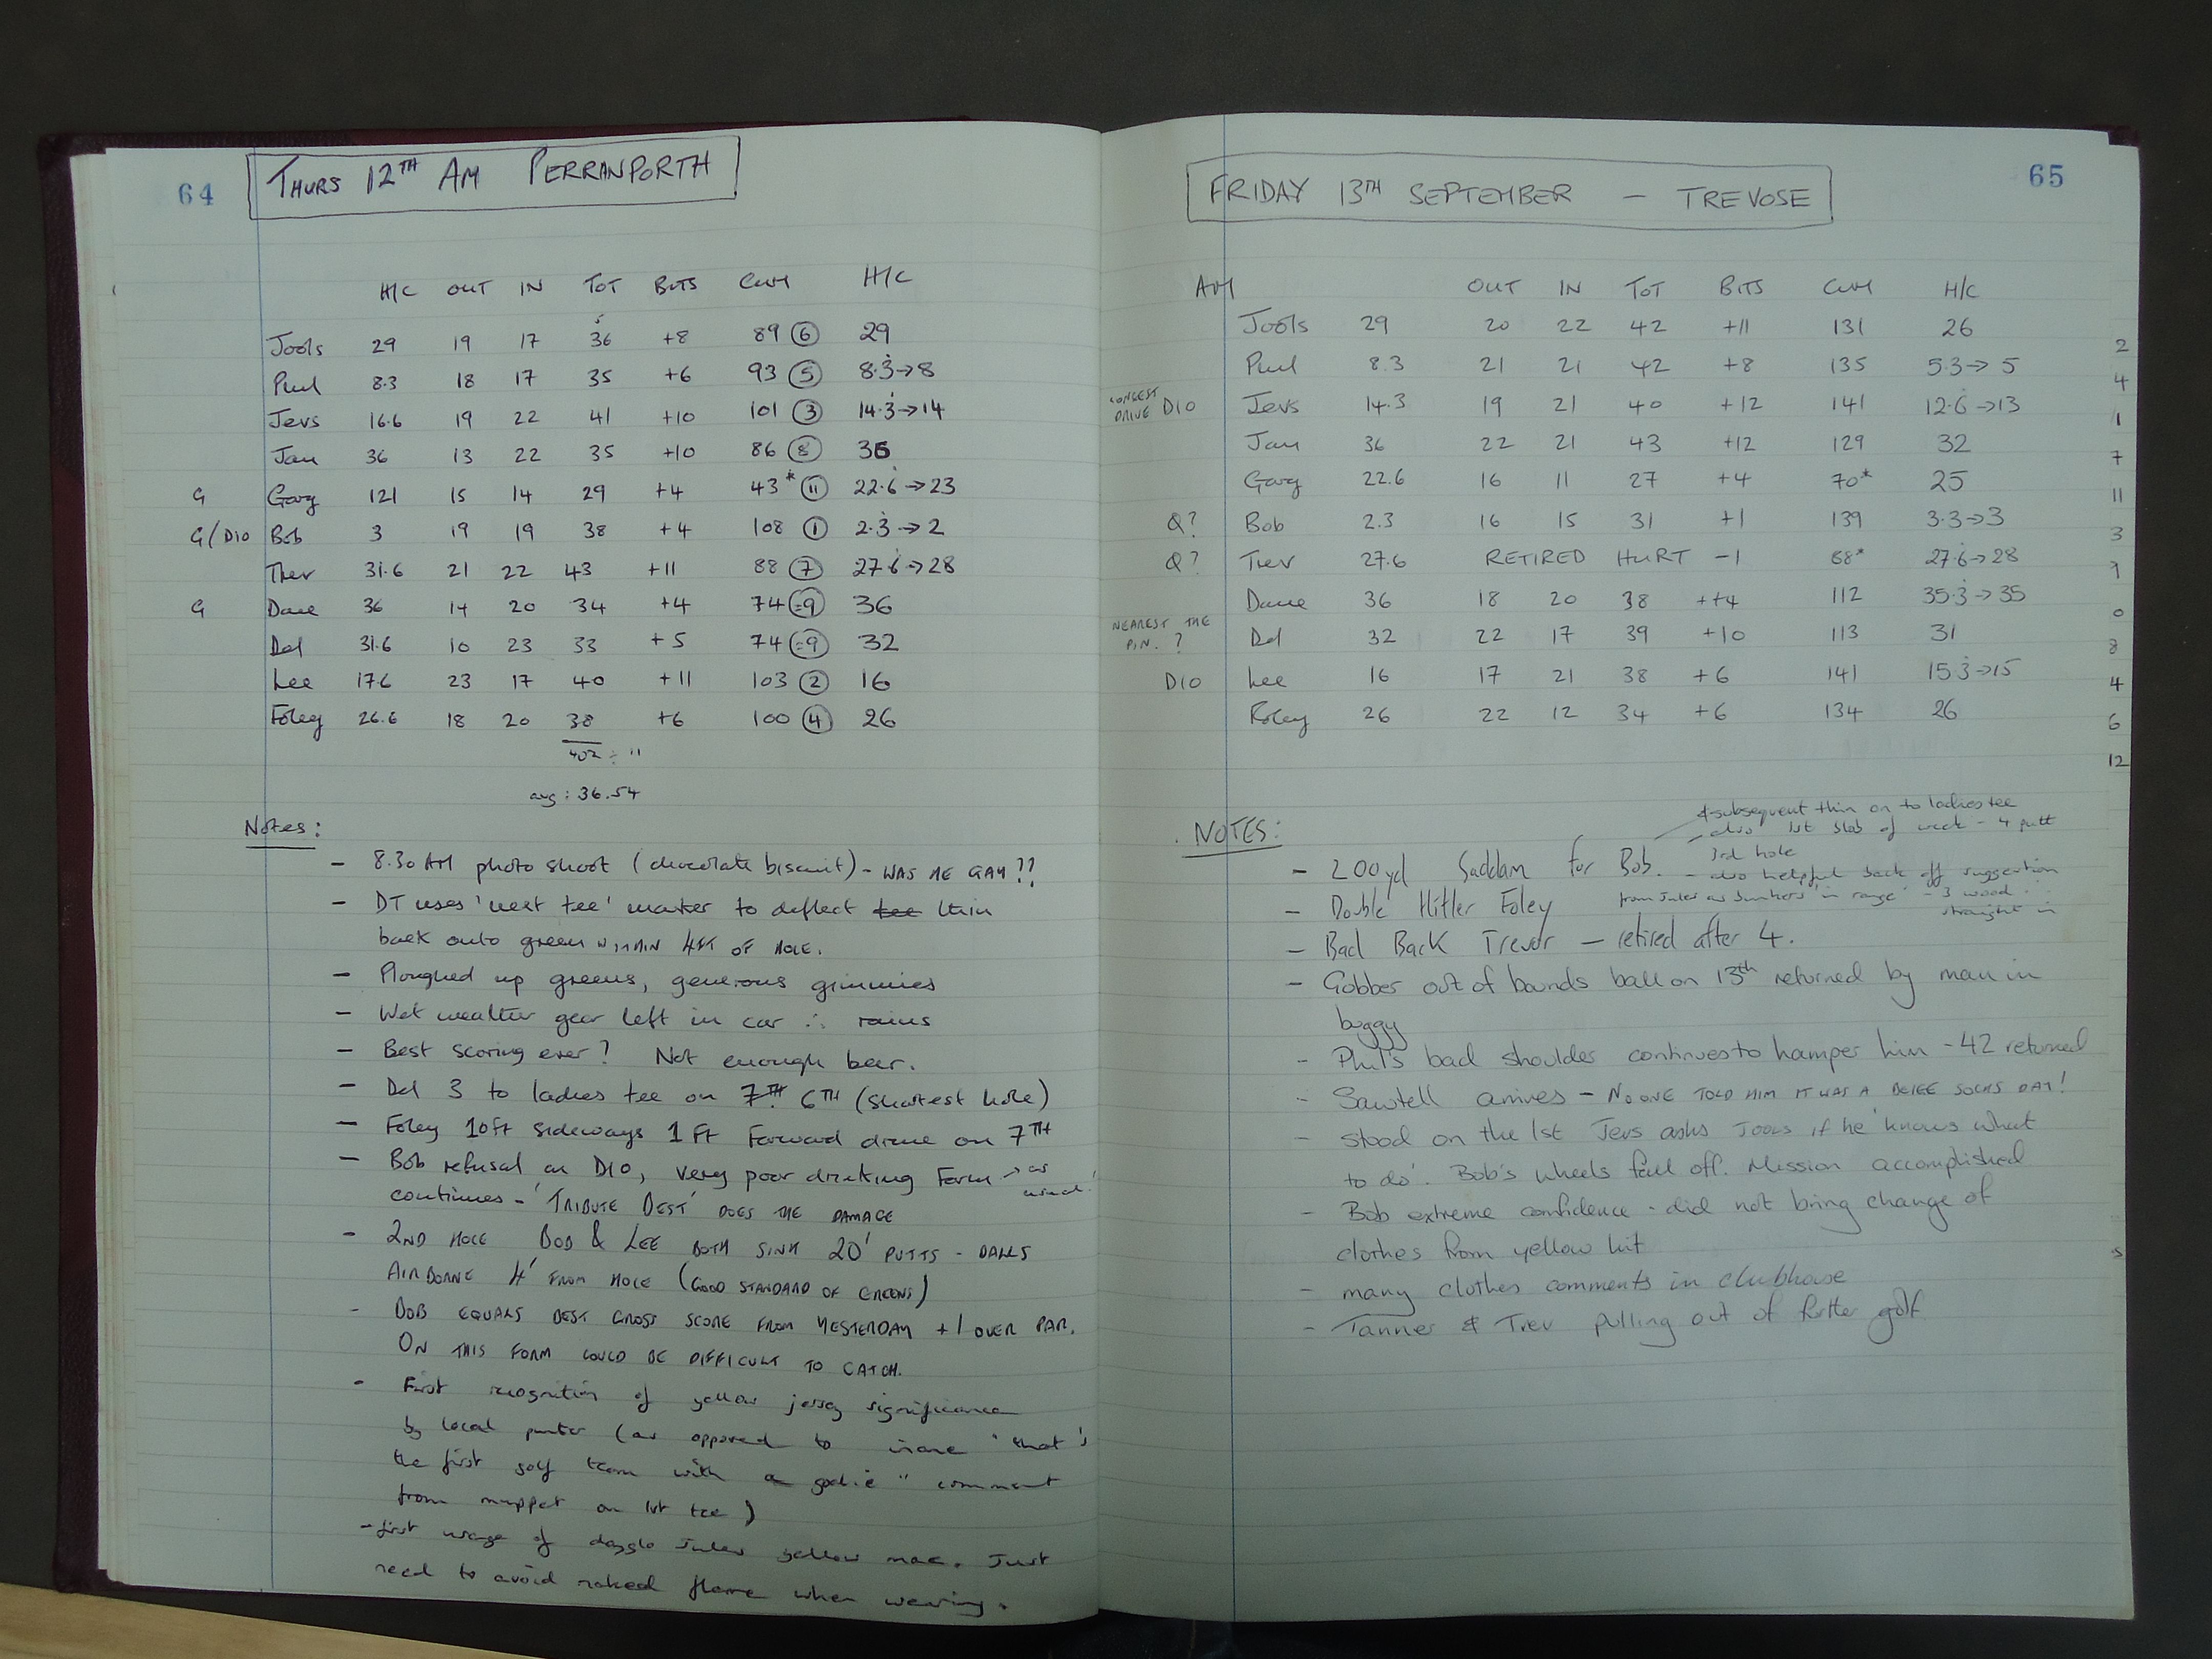 64
THURS 12TH AM PERRANPORTH
H/C OUT IN TOT BITS CUM H/C
Jools 29 19 17 36 +8 89 (6) 29
Phil 8.3 18 17 35 +6 93 (5) 8.3→8
Jevs 16.6 19 22 41 +10 101 (3) 14.3→14
Jan 36 13 22 35 +10 86 (8) 36
G Garg 121 15 14 29 +4 43* (11) 22.6→23
G/D10 Bob 3 19 19 38 +4 108 (1) 2.3→2
Trev 31.6 21 22 43 +11 88 (7) 27.6→28
G Dave 36 14 20 34 +4 74 (=9) 36
Del 31.6 10 23 33 +5 74 (=9) 32
Lee 17.6 23 17 40 +11 103 (2) 16
Foley 26.6 18 20 38 +6 100 (4) 26
402 ÷ 11
avg: 36.54
Notes:
- 8.30 AM photo shoot (chocolate biscuit) - WAS HE GAY??
- DT uses 'next tee' marker to deflect tee thin
back onto green WITHIN 4FT OF HOLE.
- Ploughed up greens, generous gimmies
- Wet weather gear left in car ∴ rains
- Best scoring ever? Not enough beer.
- Del 3 to ladies tee on 7TH. 6TH (shortest hole)
- Foley 10ft sideways 1ft forward drive on 7TH
- Bob refusal on D10, very poor drinking form → as
continues - 'TRIBUTE BEST' DOES THE DAMAGE usual!
- 2ND HOLE BOB & LEE BOTH SINK 20' PUTTS - BALLS
AIRBORNE 4' FROM HOLE (GOOD STANDARD OF GREENS)
- BOB EQUALS BEST GROSS SCORE FROM YESTERDAY +1 OVER PAR.
ON THIS FORM COULD BE DIFFICULT TO CATCH.
- First recognition of yellow jersey significance
by local punter (as opposed to inane "that's
the first golf team with a goalie" comment
from muppet on 1st tee)
- first usage of dayglo Jules yellow mac. Just
need to avoid naked flame when wearing.
65
FRIDAY 13TH SEPTEMBER - TREVOSE
AM OUT IN TOT BITS CUM H/C
Jools 29 20 22 42 +11 131 26
2
Phil 8.3 21 21 42 +8 135 5.3→5
4
LONGEST DRIVE D10 Jevs 14.3 19 21 40 +12 141 12.6→13
1
Jan 36 22 21 43 +12 129 32
7
Garg 22.6 16 11 27 +4 70* 25
11
Q? Bob 2.3 16 15 31 +1 139 3.3→3
3
Q? Trev 27.6 RETIRED HURT -1 88* 27.6→28
9
Dave 36 18 20 38 ++4 112 35.3→35
0
NEAREST THE PIN. ? Del 32 22 17 39 +10 113 31
8
D10 Lee 16 17 21 38 +6 141 15.3→15
4
Foley 26 22 12 34 +6 134 26
6
12
NOTES:
& subsequent thin on to ladies tee
- also 1st stab of week - 4 putt
3rd hole
- 200yd Saddam for Bob. - also helpful back off suggestion
from Jules as bunkers 'in range' - 3 wood
straight in
- Double Hitler Foley
- Bad Back Trevor - retired after 4.
- Gobber out of bounds ball on 13th returned by man in
buggy
- Phil's bad shoulder continues to hamper him - 42 returned
- Sawtell arrives - NO ONE TOLD HIM IT WAS A BEIGE SOCKS DAY!
- Stood on the 1st Jevs asks Jools if he 'knows what
to do'. Bob's wheels fall off. Mission accomplished
- Bob extreme confidence - did not bring change of
clothes from yellow kit
- many clothes comments in clubhouse
- Tanner & Trev pulling out of further golf